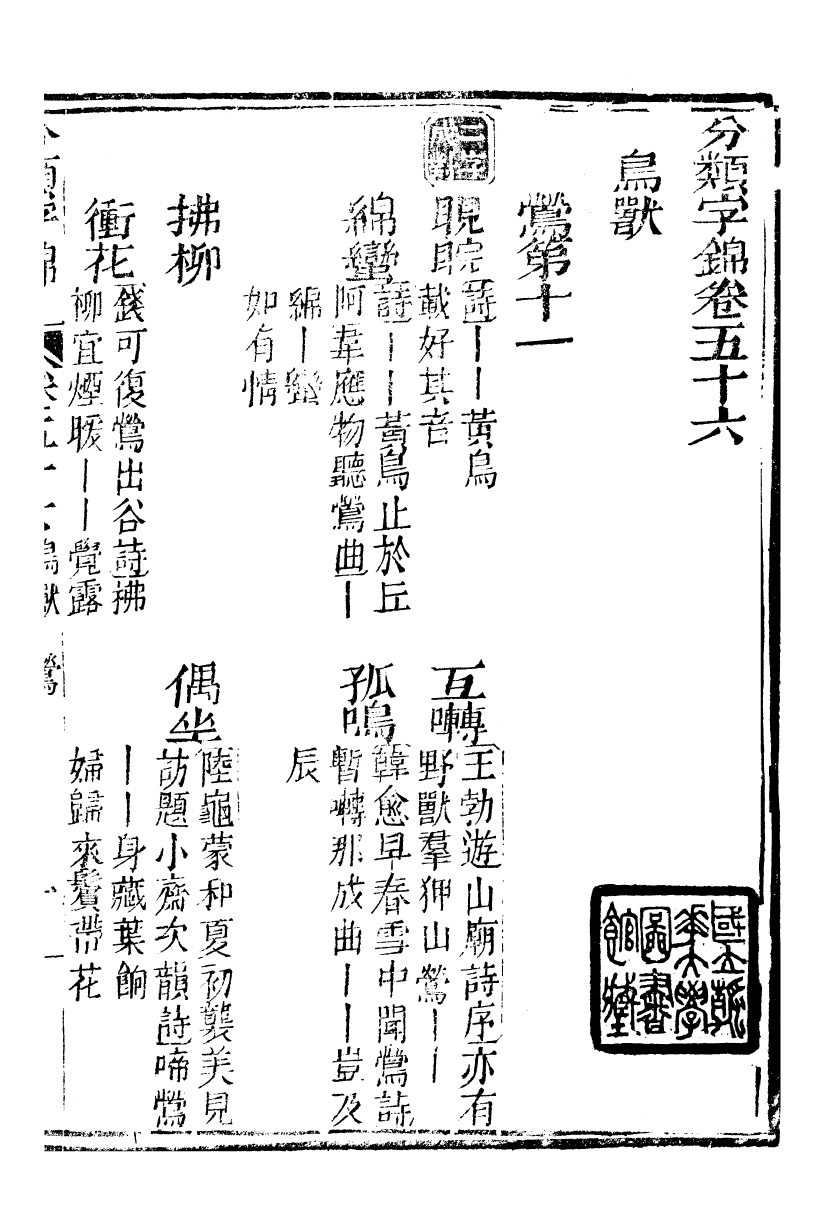 分類字錦卷五十六
鳥獸
鶯第十一
睍睆
詩丨丨黃鳥
載好其音
互囀
王勃遊山廟詩序亦有
野獸羣狎山鶯丨丨
綿蠻
詩丨丨黃鳥止於丘
阿韋應物聽鶯曲丨
綿丨蠻
如有情
孤鳴
韓愈早春雪中聞鶯詩
暫囀那成曲丨丨豈及
辰
拂柳
偶坐
陸龜蒙和夏初襲美見
訪題小齋次韻詩啼鶯
丨丨身藏葉餉
婦歸來鬢帶花
衝花
錢可復鶯出谷詩拂
柳宜煙暖丨丨覺露
國立清華大學圖書館藏